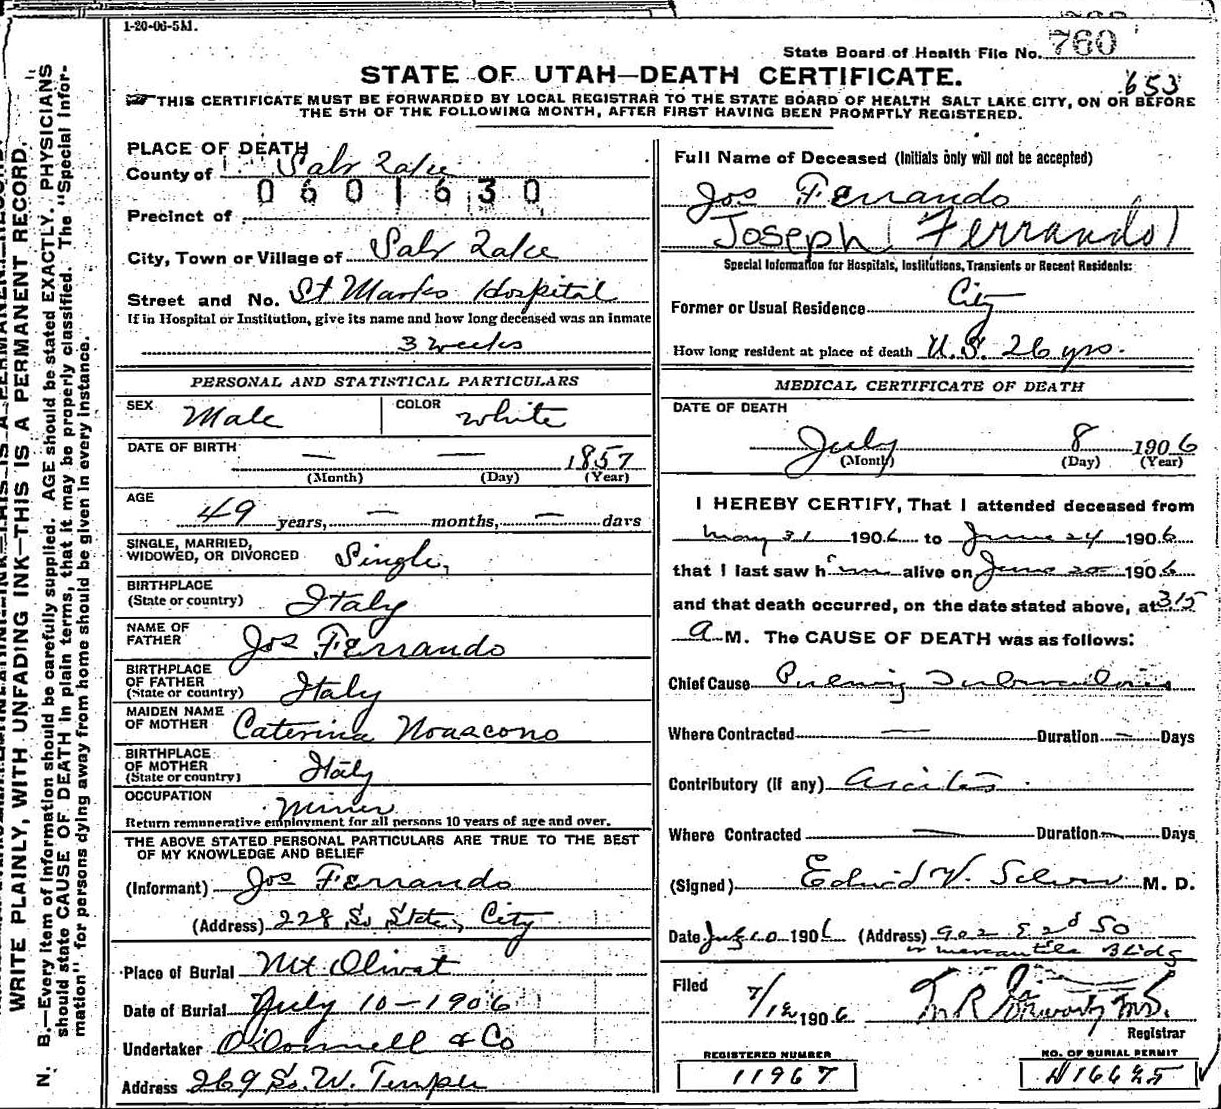 1-20-06-5M.
State Board of Health File No. 760
653
STATE OF UTAH—DEATH CERTIFICATE.
THIS CERTIFICATE MUST BE FORWARDED BY LOCAL REGISTRAR TO THE STATE BOARD OF HEALTH SALT LAKE CITY, ON OR BEFORE
THE 5TH OF THE FOLLOWING MONTH, AFTER FIRST HAVING BEEN PROMPTLY REGISTERED.
WRITE PLAINLY, WITH UNFADING INK—THIS IS A PERMANENT RECORD.
N. B.—Every item of information should be carefully supplied. AGE should be stated EXACTLY. PHYSICIANS
should state CAUSE OF DEATH in plain terms, that it may be properly classified. The "Special Infor-
mation" for persons dying away from home should be given in every instance.
PLACE OF DEATH
County of Salt Lake
0601630
Precinct of
City, Town or Village of Salt Lake
Street and No. St Marks Hospital
If in Hospital or Institution, give its name and how long deceased was an inmate
3 weeks
PERSONAL AND STATISTICAL PARTICULARS
SEX Male COLOR white
DATE OF BIRTH — — 1857
(Month) (Day) (Year)
AGE 49 years, — months, — days
SINGLE, MARRIED,
WIDOWED, OR DIVORCED Single
BIRTHPLACE
(State or country) Italy
NAME OF
FATHER Jos Ferrando
BIRTHPLACE
OF FATHER
(State or country) Italy
MAIDEN NAME
OF MOTHER Caterina
BIRTHPLACE
OF MOTHER
(State or country) Italy
OCCUPATION Miner
Return remunerative employment for all persons 10 years of age and over.
THE ABOVE STATED PERSONAL PARTICULARS ARE TRUE TO THE BEST
OF MY KNOWLEDGE AND BELIEF
(Informant) Jos Ferrando
(Address) 228 So State, City
Place of Burial Mt Olivet
Date of Burial July 10-1906
Undertaker O'Donnell & Co
Address 269 So. W. Temple
Full Name of Deceased (Initials only will not be accepted)
Jos Ferrando
Joseph (Ferrando)
Special Information for Hospitals, Institutions, Transients or Recent Residents:
Former or Usual Residence City
How long resident at place of death U.S. 26 yrs.
MEDICAL CERTIFICATE OF DEATH
DATE OF DEATH
July 8 1906
(Month) (Day) (Year)
I HEREBY CERTIFY, That I attended deceased from
May 31 1906 to June 24 1906
that I last saw him alive on June 20 1906
and that death occurred, on the date stated above, at 3 15
a M. The CAUSE OF DEATH was as follows:
Chief Cause Tuberculosis
Where Contracted — Duration — Days
Contributory (if any) Ascites
Where Contracted — Duration — Days
(Signed) M. D.
Date July 10 1906 (Address) 902 E 2d So
or mercantile Bldg
Filed 7/12 1906 M.D.
Registrar
REGISTERED NUMBER
11967
NO. OF BURIAL PERMIT